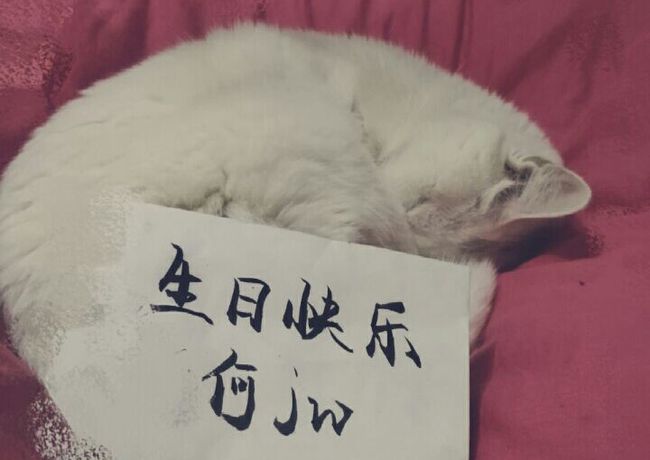 生日快乐
何jw